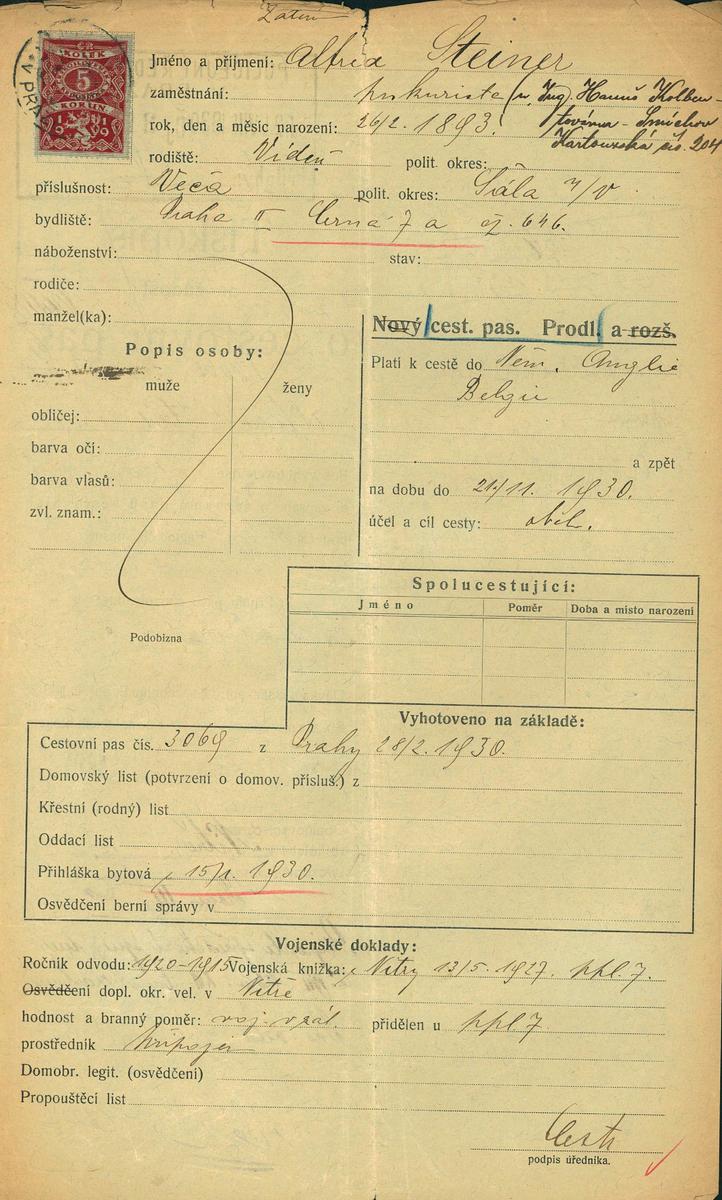 ČR
KOLEK
5
KORUN
1919
V PRAZE
Jméno a příjmení: Alfred Steiner
zaměstnání: prokurista (u Ing. Hanuš Kolben
rok, den a měsíc narození: 26/2. 1893. továrna - Smíchov
Kartouzská čís. 204
rodiště: Vídeň polit. okres:
příslušnost: Veča polit. okres: Šála n/V.
bydliště: Praha II Černá 7 a čp. 646.
náboženství: stav:
rodiče:
manžel(ka):
Nový cest. pas. Prodl. a rozš.
Popis osoby:
muže ženy
Platí k cestě do Něm. Anglie
Belgie
obličej:
barva očí:
a zpět
barva vlasů:
na dobu do 21/11. 1930.
zvl. znam.:
účel a cíl cesty: obch.
Spolucestující:
Jméno Poměr Doba a místo narození
Podobizna
Vyhotoveno na základě:
Cestovní pas čís. 3069 z Prahy 28/2. 1930.
Domovský list (potvrzení o domov. přísluš.) z
Křestní (rodný) list
Oddací list
Přihláška bytová z 15/1. 1930.
Osvědčení berní správy v
Vojenské doklady:
Ročník odvodu: 1920-1915 Vojenská knížka: Nitry 13/5. 1927. ppl. 7.
Osvědčení dopl. okr. vel. v Nitře
hodnost a branný poměr: voj. v zál. přidělen u ppl 7
prostředník
Domobr. legit. (osvědčení)
Propouštěcí list
podpis úředníka.